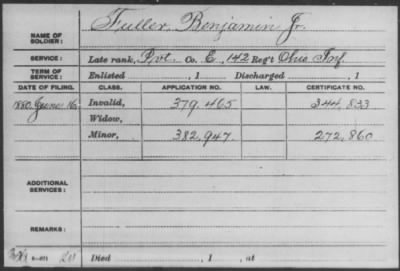 Fuller, Benjamin Jr.
NAME OF SOLDIER:
SERVICE: Late rank, Pvt Co. E, 142 Reg't Ohio Inf.
TERM OF SERVICE: Enlisted , 1 Discharged , 1
DATE OF FILING. CLASS. APPLICATION NO. LAW. CERTIFICATE NO.
1880 June 16 Invalid, 379,465 344,833
Widow,
Minor, 382,947. 272,860
ADDITIONAL SERVICES:
REMARKS:
Died , 1 , at